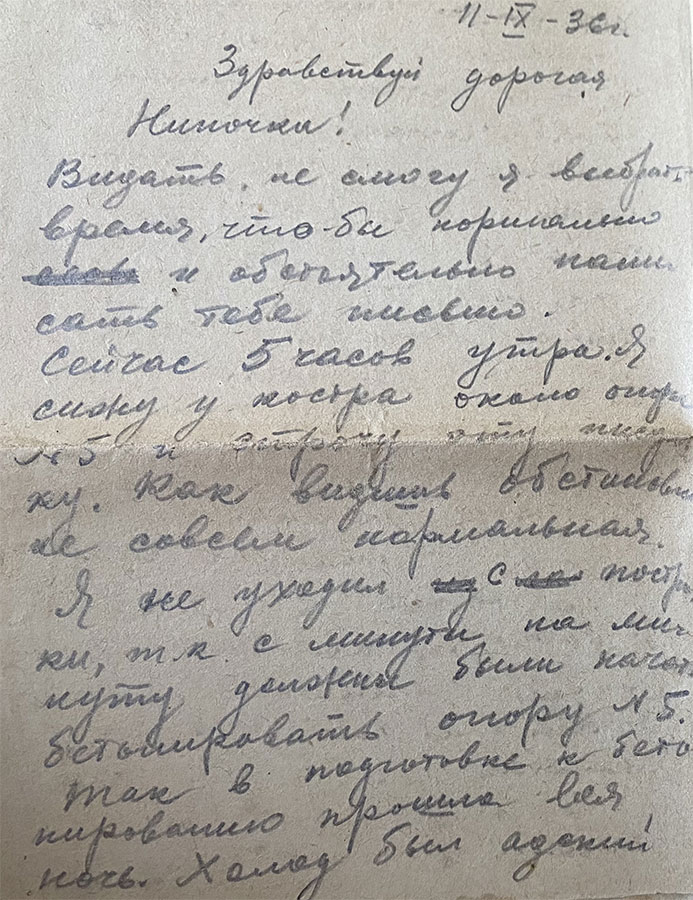 11-IX-36г.
Здравствуй дорогая
Ниночка!
Видать не смогу я выбрать
время, что-бы нормально
и обстоятельно напи
сать тебе письмо.
Сейчас 5 часов утра. Я
сижу у костра около опоры
№5 и строчу эту писуль
ку. Как видишь обстановка
не совсем нормальная.
Я не уходил с построй
ки, т.к. с минуты на ми-
нуту должны были начать
бетонировать опору №5.
Так в подготовке к бето
нированию прошла вся
ночь. Холод был адский